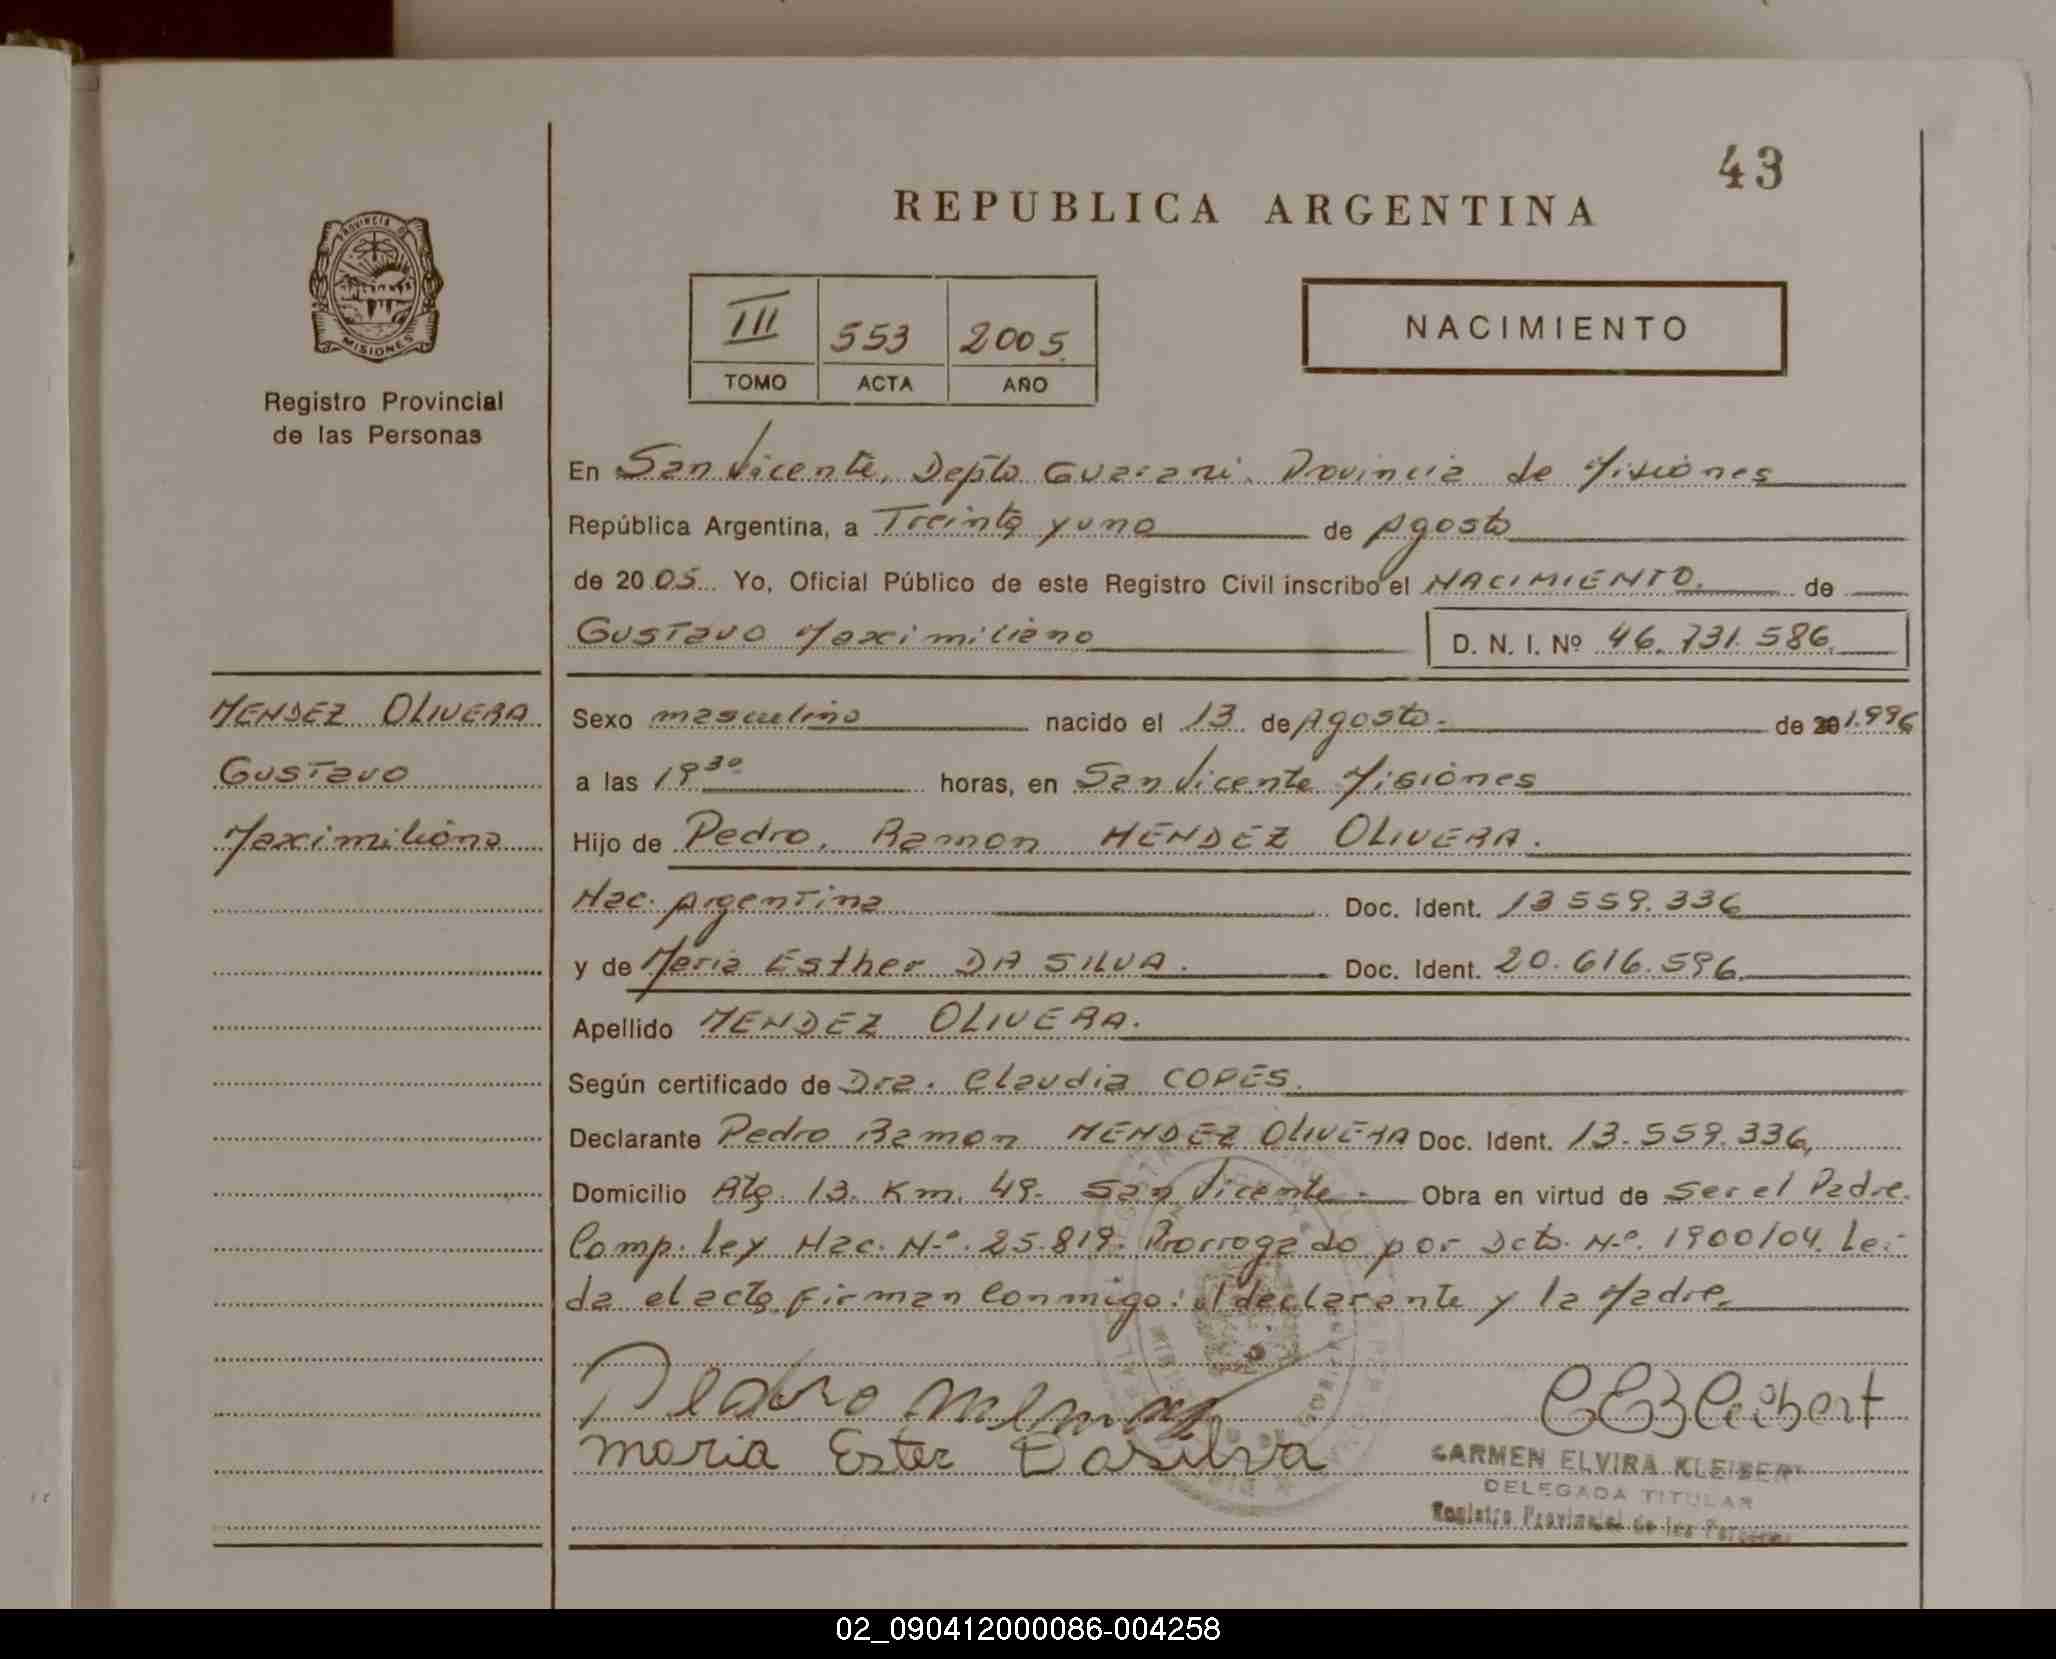 43
REPUBLICA ARGENTINA
PROVINCIA DE
MISIONES
Registro Provincial
de las Personas
III 553 2005
TOMO ACTA AÑO
NACIMIENTO
En San Vicente, Depto Guarani. Provincia de Misiones
República Argentina, a Treinta y uno de Agosto
de 2005 Yo, Oficial Público de este Registro Civil inscribo el NACIMIENTO. de
Gustavo Maximiliano D. N. I. Nº 46.731.586.
MENDEZ OLIVERA
Gustavo
Maximiliano
Sexo masculino nacido el 13 de Agosto. de 20 1.996
a las 19 30 horas, en San Vicente Misiones
Hijo de Pedro, Ramon MENDEZ OLIVERA.
Nac. Argentina Doc. Ident. 13 559.336
y de Maria Esther DA SILVA. Doc. Ident. 20.616.596.
Apellido MENDEZ OLIVERA.
Según certificado de Dra. Claudia COPES.
Declarante Pedro Ramon MENDEZ OLIVERA Doc. Ident. 13.559.336,
Domicilio Rta. 13. Km. 49. San Vicente. Obra en virtud de ser el Padre.
Comp. Ley Nac. Nº. 25.819. Prorrogado por Dcto. Nº. 1900/04. Lei-
da el acta firman Conmigo: el declarante y la Madre.
Pedro
Maria Ester Dasilva
CEKleibert
CARMEN ELVIRA KLEIBERT
DELEGADA TITULAR
Registro Provincial de las Personas
02_090412000086-004258